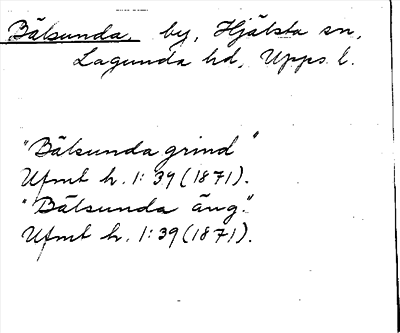 Bälsunda, by, Hjälsta sn,
Lagunda hd, Upps. l.
"Bälsunda grind"
Ufmt h. 1:39 (1871).
"Bälsunda äng".
Ufmt h. 1:39 (1871).